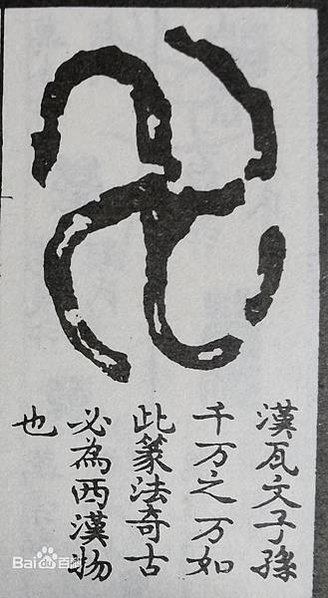 万
漢瓦文子孫
千万之万如
此篆法奇古
必為西漢物
也
Bai du 百科